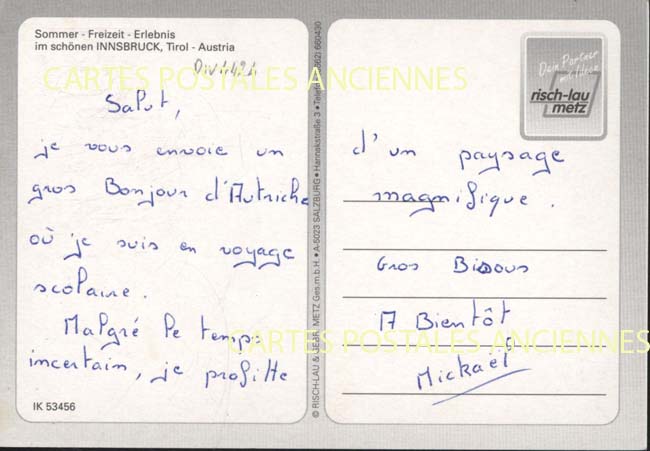 Sommer - Freizeit - Erlebnis
im schönen INNSBRUCK, Tirol - Austria
CARTES POSTALES ANCIENNES
Salut,
je vous envoie un
gros Bonjour d'Autriche
où je suis en voyage
scolaire.
Malgré le temps
incertain, je profitte
IK 53456
© RISCH-LAU & GEBR. METZ Ges.m.b.H. • A-5023 SALZBURG • Hannakstraße 3 • Telefon 662) 660430
Dein Partner
risch-lau
metz
d'un paysage
magnifique.
Gros Bisous
A Bientôt
CARTES POSTALES ANCIENNES
Mickaël